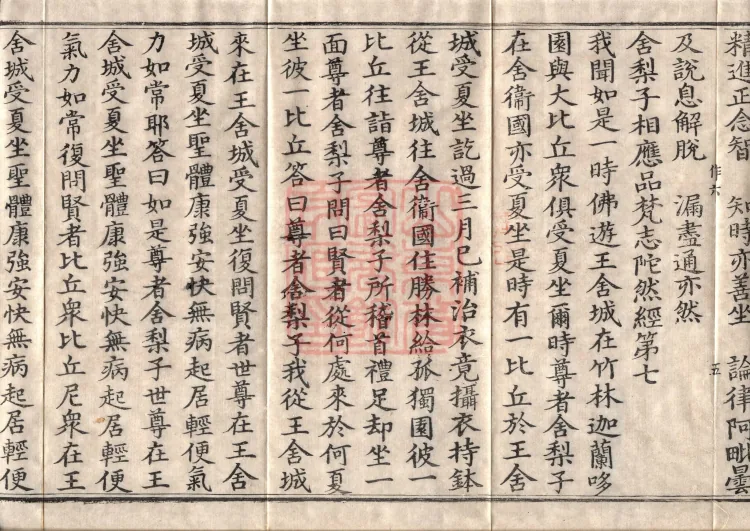 精進正念智　知時亦善坐　論律阿毗曇
及說息解脫　漏盡通亦然
作六
五
舍梨子相應品梵志陀然經第七
我聞如是一時佛遊王舍城在竹林迦蘭哆
園與大比丘衆俱受夏坐爾時尊者舍梨子
在舍衞國亦受夏坐是時有一比丘於王舍
城受夏坐訖過三月已補治衣竟攝衣持鉢
從王舍城往舍衞國住勝林給孤獨園彼一
比丘往詣尊者舍梨子所稽首禮足却坐一
面尊者舍梨子問曰賢者從何處來於何夏
坐彼一比丘答曰尊者舍梨子我從王舍城
來在王舍城受夏坐復問賢者世尊在王舍
城受夏坐聖體康強安快無病起居輕便氣
力如常耶答曰如是尊者舍梨子世尊在王
舍城受夏坐聖體康強安快無病起居輕便
氣力如常復問賢者比丘衆比丘尼衆在王
舍城受夏坐聖體康強安快無病起居輕便